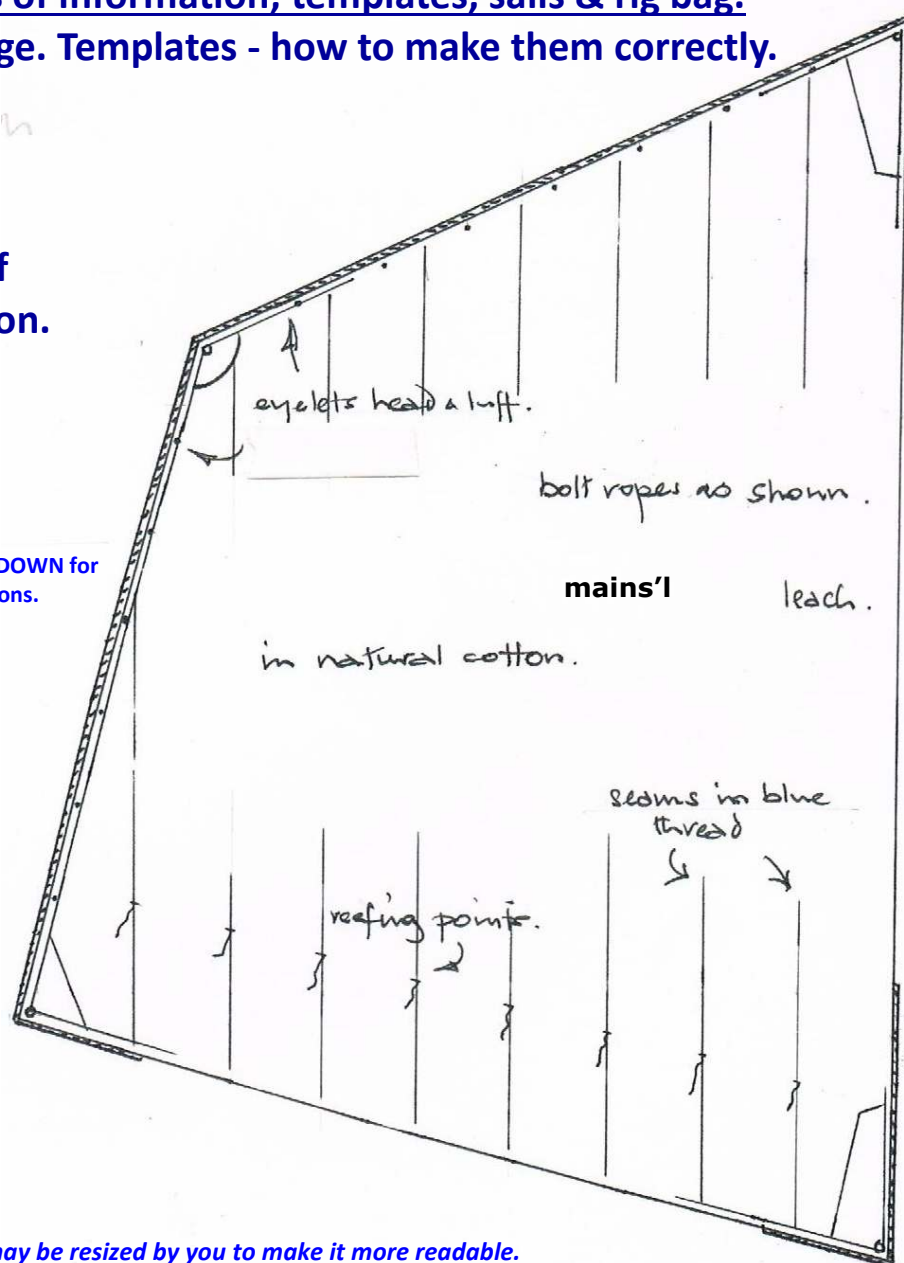 s of information, templates, sails & rig bag.
ge. Templates - how to make them correctly.
f
on.
eyelets head & luff.
bolt ropes as shown.
DOWN for
ons.
mains'l
leach.
in natural cotton.
seams in blue
thread
reefing points.
may be resized by you to make it more readable.